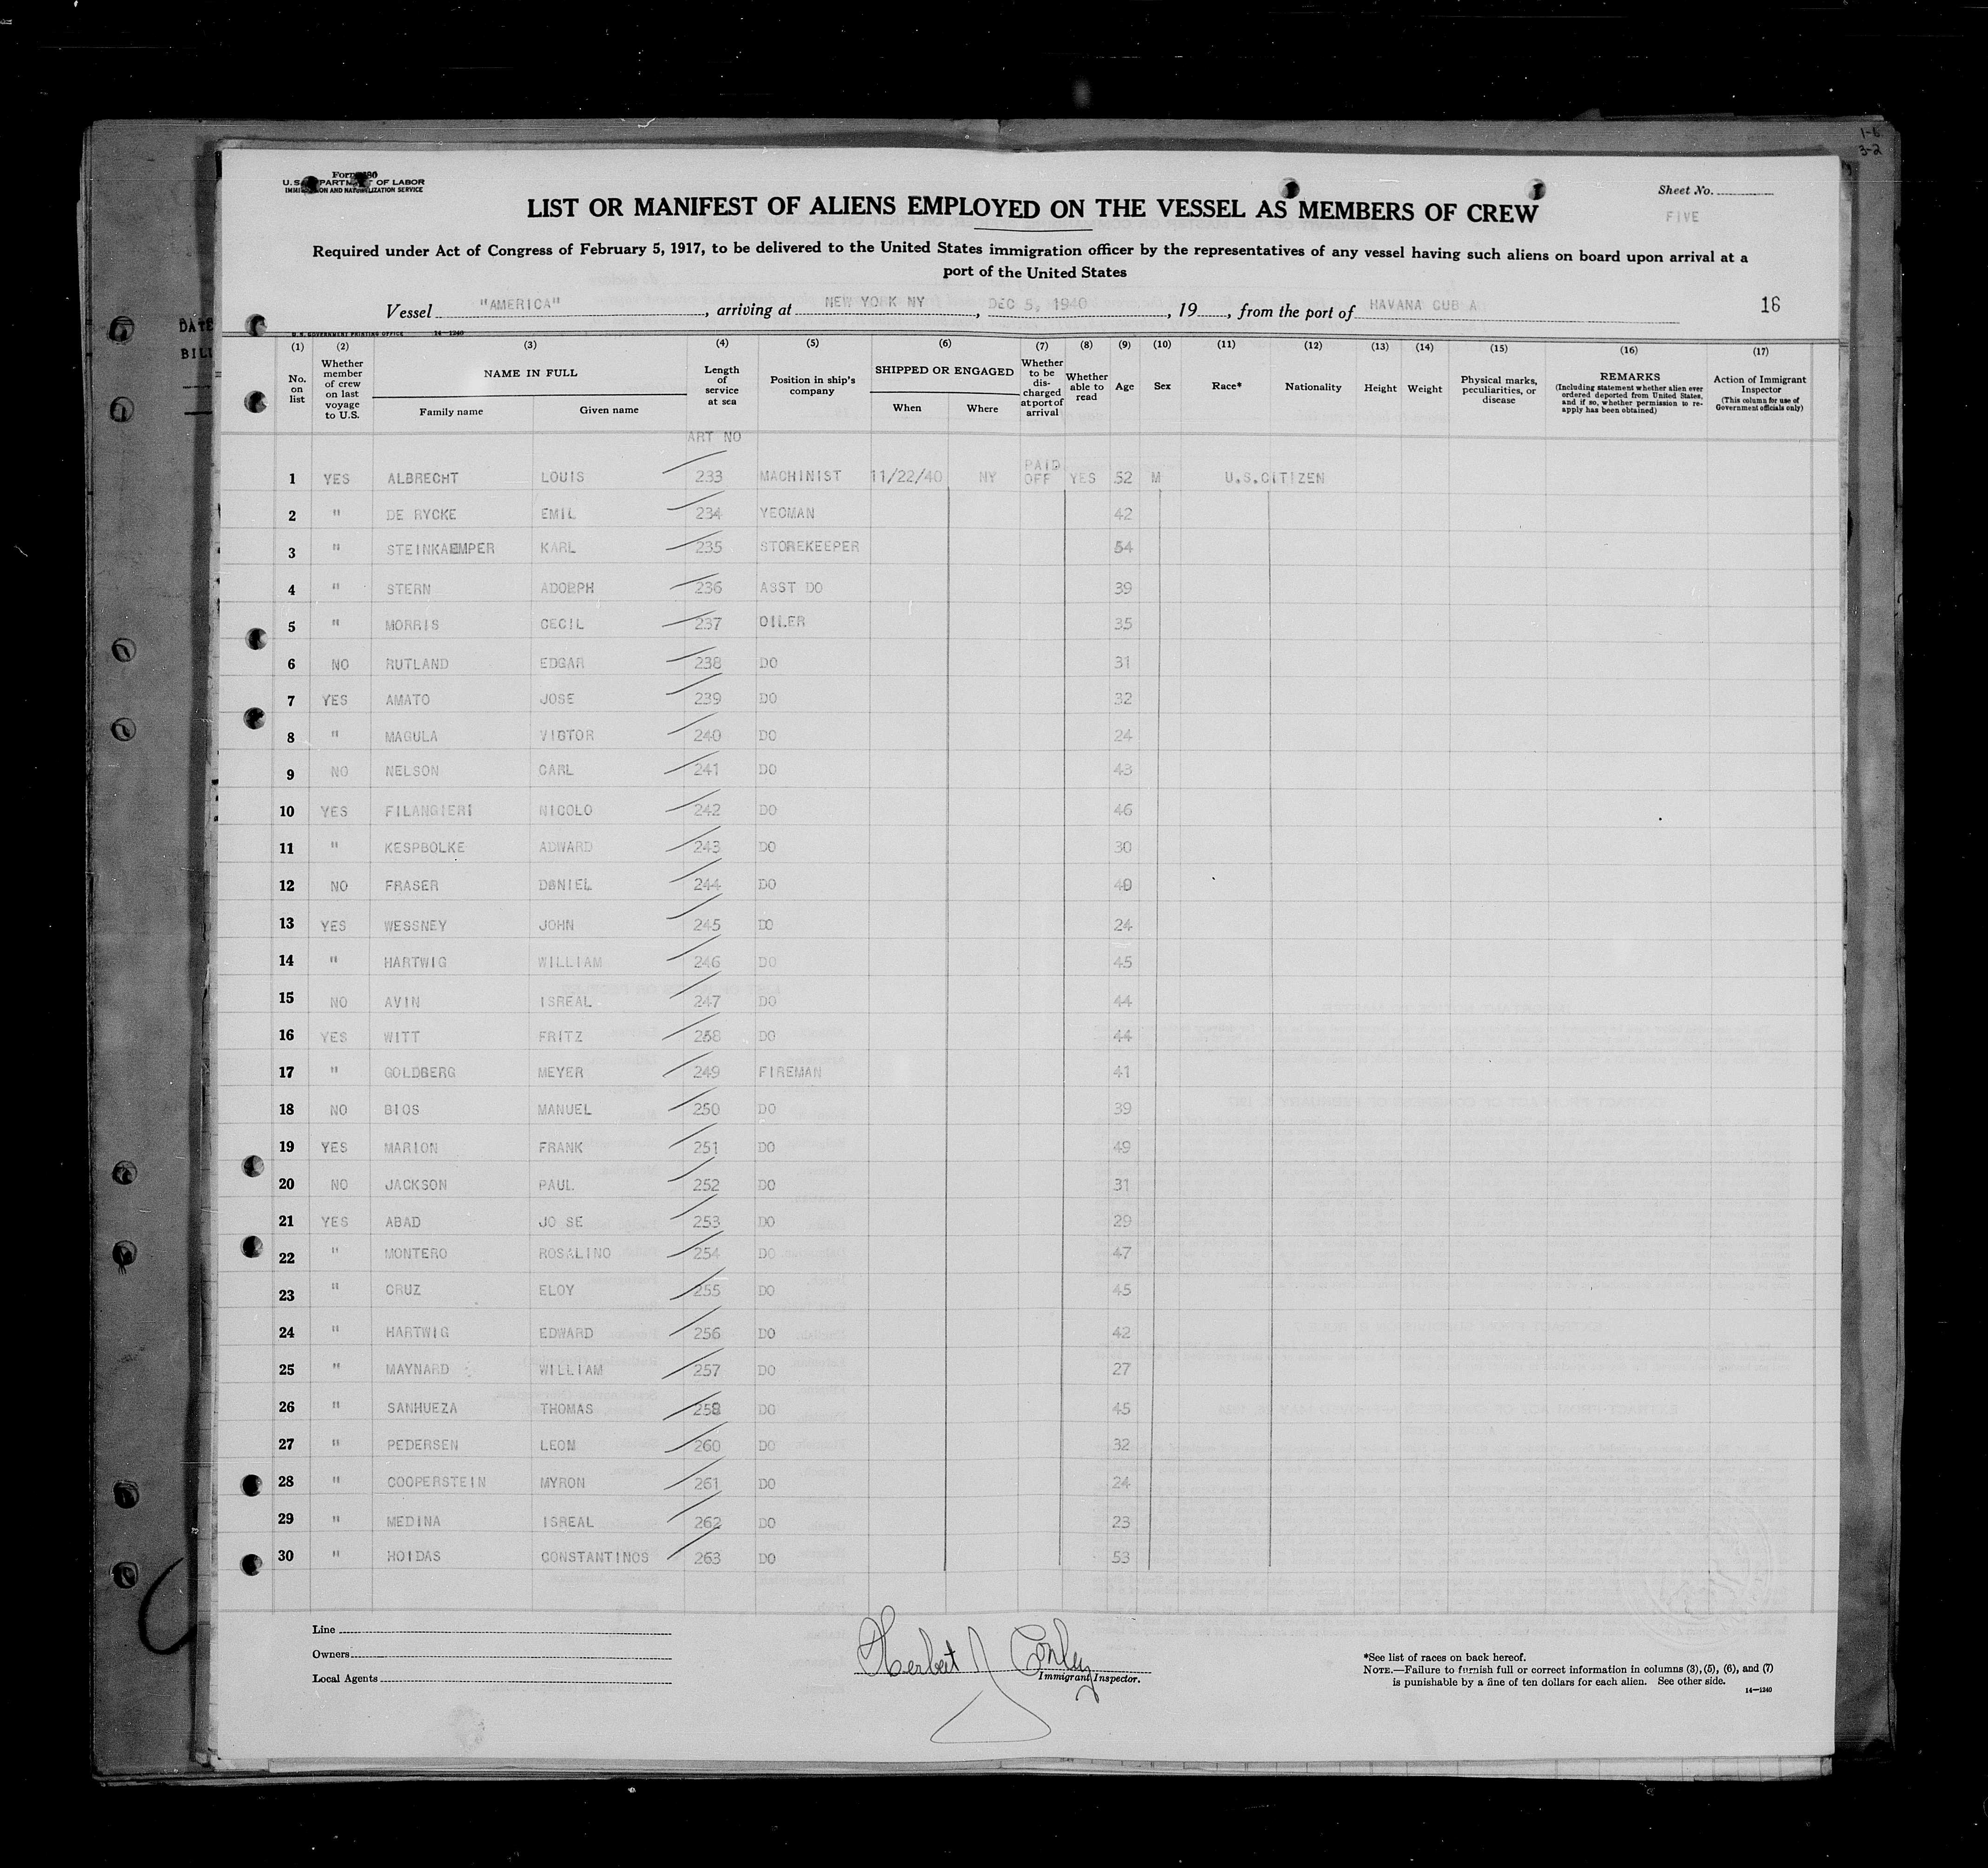 1-6
3-2
DATE
BILL
Form 680
U. S. DEPARTMENT OF LABOR
IMMIGRATION AND NATURALIZATION SERVICE
Sheet No.
FIVE
LIST OR MANIFEST OF ALIENS EMPLOYED ON THE VESSEL AS MEMBERS OF CREW
Required under Act of Congress of February 5, 1917, to be delivered to the United States immigration officer by the representatives of any vessel having such aliens on board upon arrival at a
port of the United States
Vessel "AMERICA", arriving at NEW YORK NY, DEC 5, 1940, 19, from the port of HAVANA CUBA
16
U. S. GOVERNMENT PRINTING OFFICE 14—1240
(1) No. on list
(2) Whether member of crew on last voyage to U.S.
(3) NAME IN FULL Family name Given name
(4) Length of service at sea
(5) Position in ship's company
(6) SHIPPED OR ENGAGED When Where
(7) Whether to be discharged at port of arrival
(8) Whether able to read
(9) Age
(10) Sex
(11) Race*
(12) Nationality
(13) Height
(14) Weight
(15) Physical marks, peculiarities, or disease
(16) REMARKS (Including statement whether alien ever ordered deported from United States, and if so, whether permission to re-apply has been obtained)
(17) Action of Immigrant Inspector (This column for use of Government officials only)
ART NO
1 YES ALBRECHT LOUIS 233 MACHINIST 11/22/40 NY PAID OFF YES 52 M U.S.CITIZEN
2 " DE RYCKE EMIL 234 YEOMAN 42
3 " STEINKAEMPER KARL 235 STOREKEEPER 54
4 " STERN ADOLPH 236 ASST DO 39
5 " MORRIS CECIL 237 OILER 35
6 NO RUTLAND EDGAR 238 DO 31
7 YES AMATO JOSE 239 DO 32
8 " MAGULA VICTOR 240 DO 24
9 NO NELSON CARL 241 DO 43
10 YES FILANGIERI NICOLO 242 DO 46
11 " KESPBOLKE ADWARD 243 DO 30
12 NO FRASER DANIEL 244 DO 40
13 YES WESSNEY JOHN 245 DO 24
14 " HARTWIG WILLIAM 246 DO 45
15 NO AVIN ISREAL 247 DO 44
16 YES WITT FRITZ 258 DO 44
17 " GOLDBERG MEYER 249 FIREMAN 41
18 NO BIOS MANUEL 250 DO 39
19 YES MARION FRANK 251 DO 49
20 NO JACKSON PAUL 252 DO 31
21 YES ABAD JO SE 253 DO 29
22 " MONTERO ROSALINO 254 DO 47
23 " CRUZ ELOY 255 DO 45
24 " HARTWIG EDWARD 256 DO 42
25 " MAYNARD WILLIAM 257 DO 27
26 " SANHUEZA THOMAS 259 DO 45
27 " PEDERSEN LEON 260 DO 32
28 " COOPERSTEIN MYRON 261 DO 24
29 " MEDINA ISREAL 262 DO 23
30 " HOIDAS CONSTANTINOS 263 DO 53
Line
Owners
Local Agents
Herbert J Conley
Immigrant Inspector.
*See list of races on back hereof.
NOTE.—Failure to furnish full or correct information in columns (3), (5), (6), and (7)
is punishable by a fine of ten dollars for each alien. See other side.
14—1240